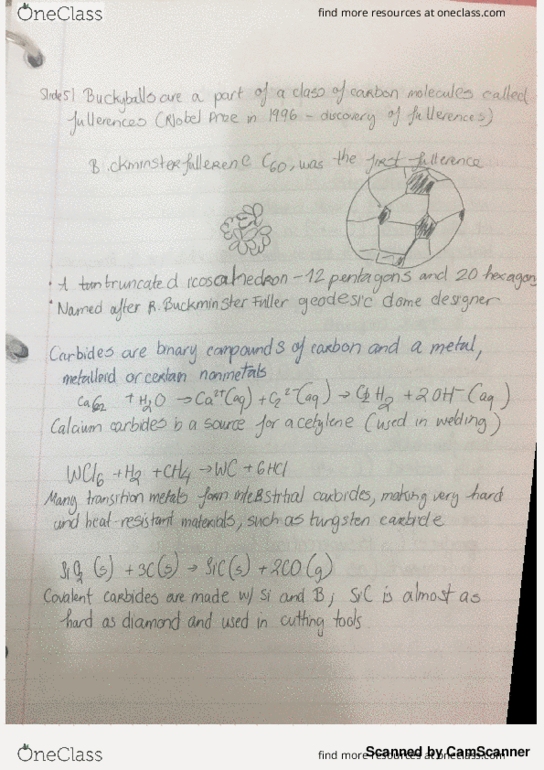 OneClass
find more resources at oneclass.com
Slide 51 Buckyballs are a part of a class of carbon molecules called
fullerences (Nobel Prize in 1996 - discovery of fullerences)
B ckminsterfullerene C60, was the first fullerence
· A truncated icosahedron - 12 pentagons and 20 hexagon
· Named after R. Buckminster Fuller geodesic dome designer
Carbides are binary compounds of carbon and a metal,
metalloid or certain nonmetals
CaC2 + H2O → Ca2+(aq) + C2 2-(aq) → C2H2 + 2OH-(aq)
Calcium carbides is a source for acetylene (used in welding)
WCl6 + H2 + CH4 → WC + 6HCl
Many transition metals form interstitial carbides, making very hard
and heat-resistant materials, such as tungsten carbide
SiO2 (s) + 3C(s) → SiC(s) + 2CO(g)
Covalent carbides are made w/ Si and B; SiC is almost as
hard as diamond and used in cutting tools
OneClass
find more resources at oneclass.com
Scanned by CamScanner